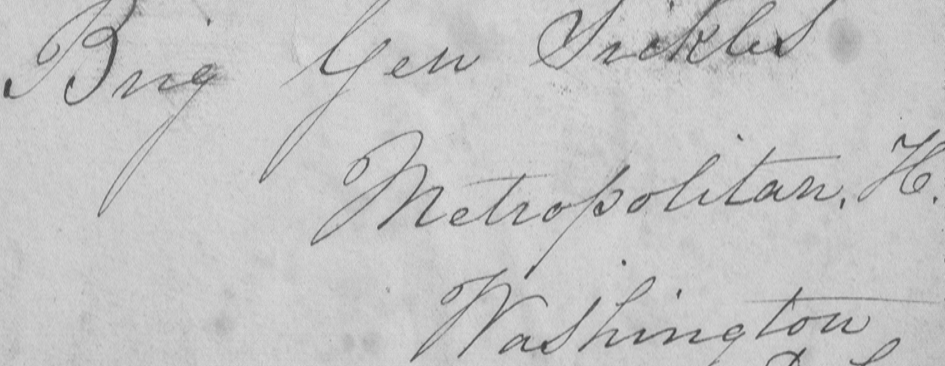 Brig Gen Sickles
Metropolitan. H.
Washington